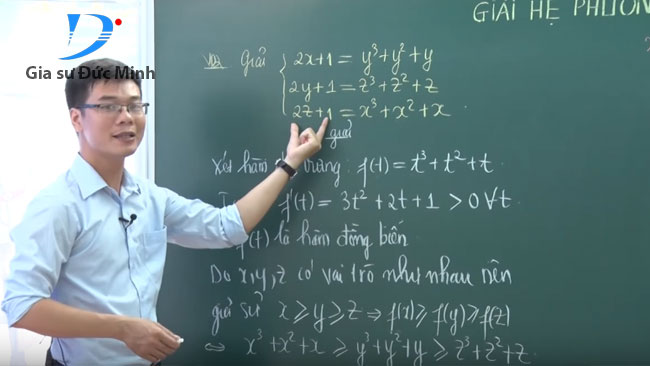 GIẢI HỆ PHƯƠN
Gia sư Đức Minh
VD2 Giải
2x+1 = y³+y²+y
2y+1 = z³+z²+z
2z+1 = x³+x²+x
giải
Xét hàm trưng: f(t) = t³+t²+t.
f'(t) = 3t²+2t+1 > 0 ∀t.
(t) là hàm đồng biến
Do x,y,z có vai trò như nhau nên
giả sử x ⩾ y ⩾ z ⇒ f(x) ⩾ f(y) ⩾ f(z)
⇔ x³+x²+x ⩾ y³+y²+y ⩾ z³+z²+z.